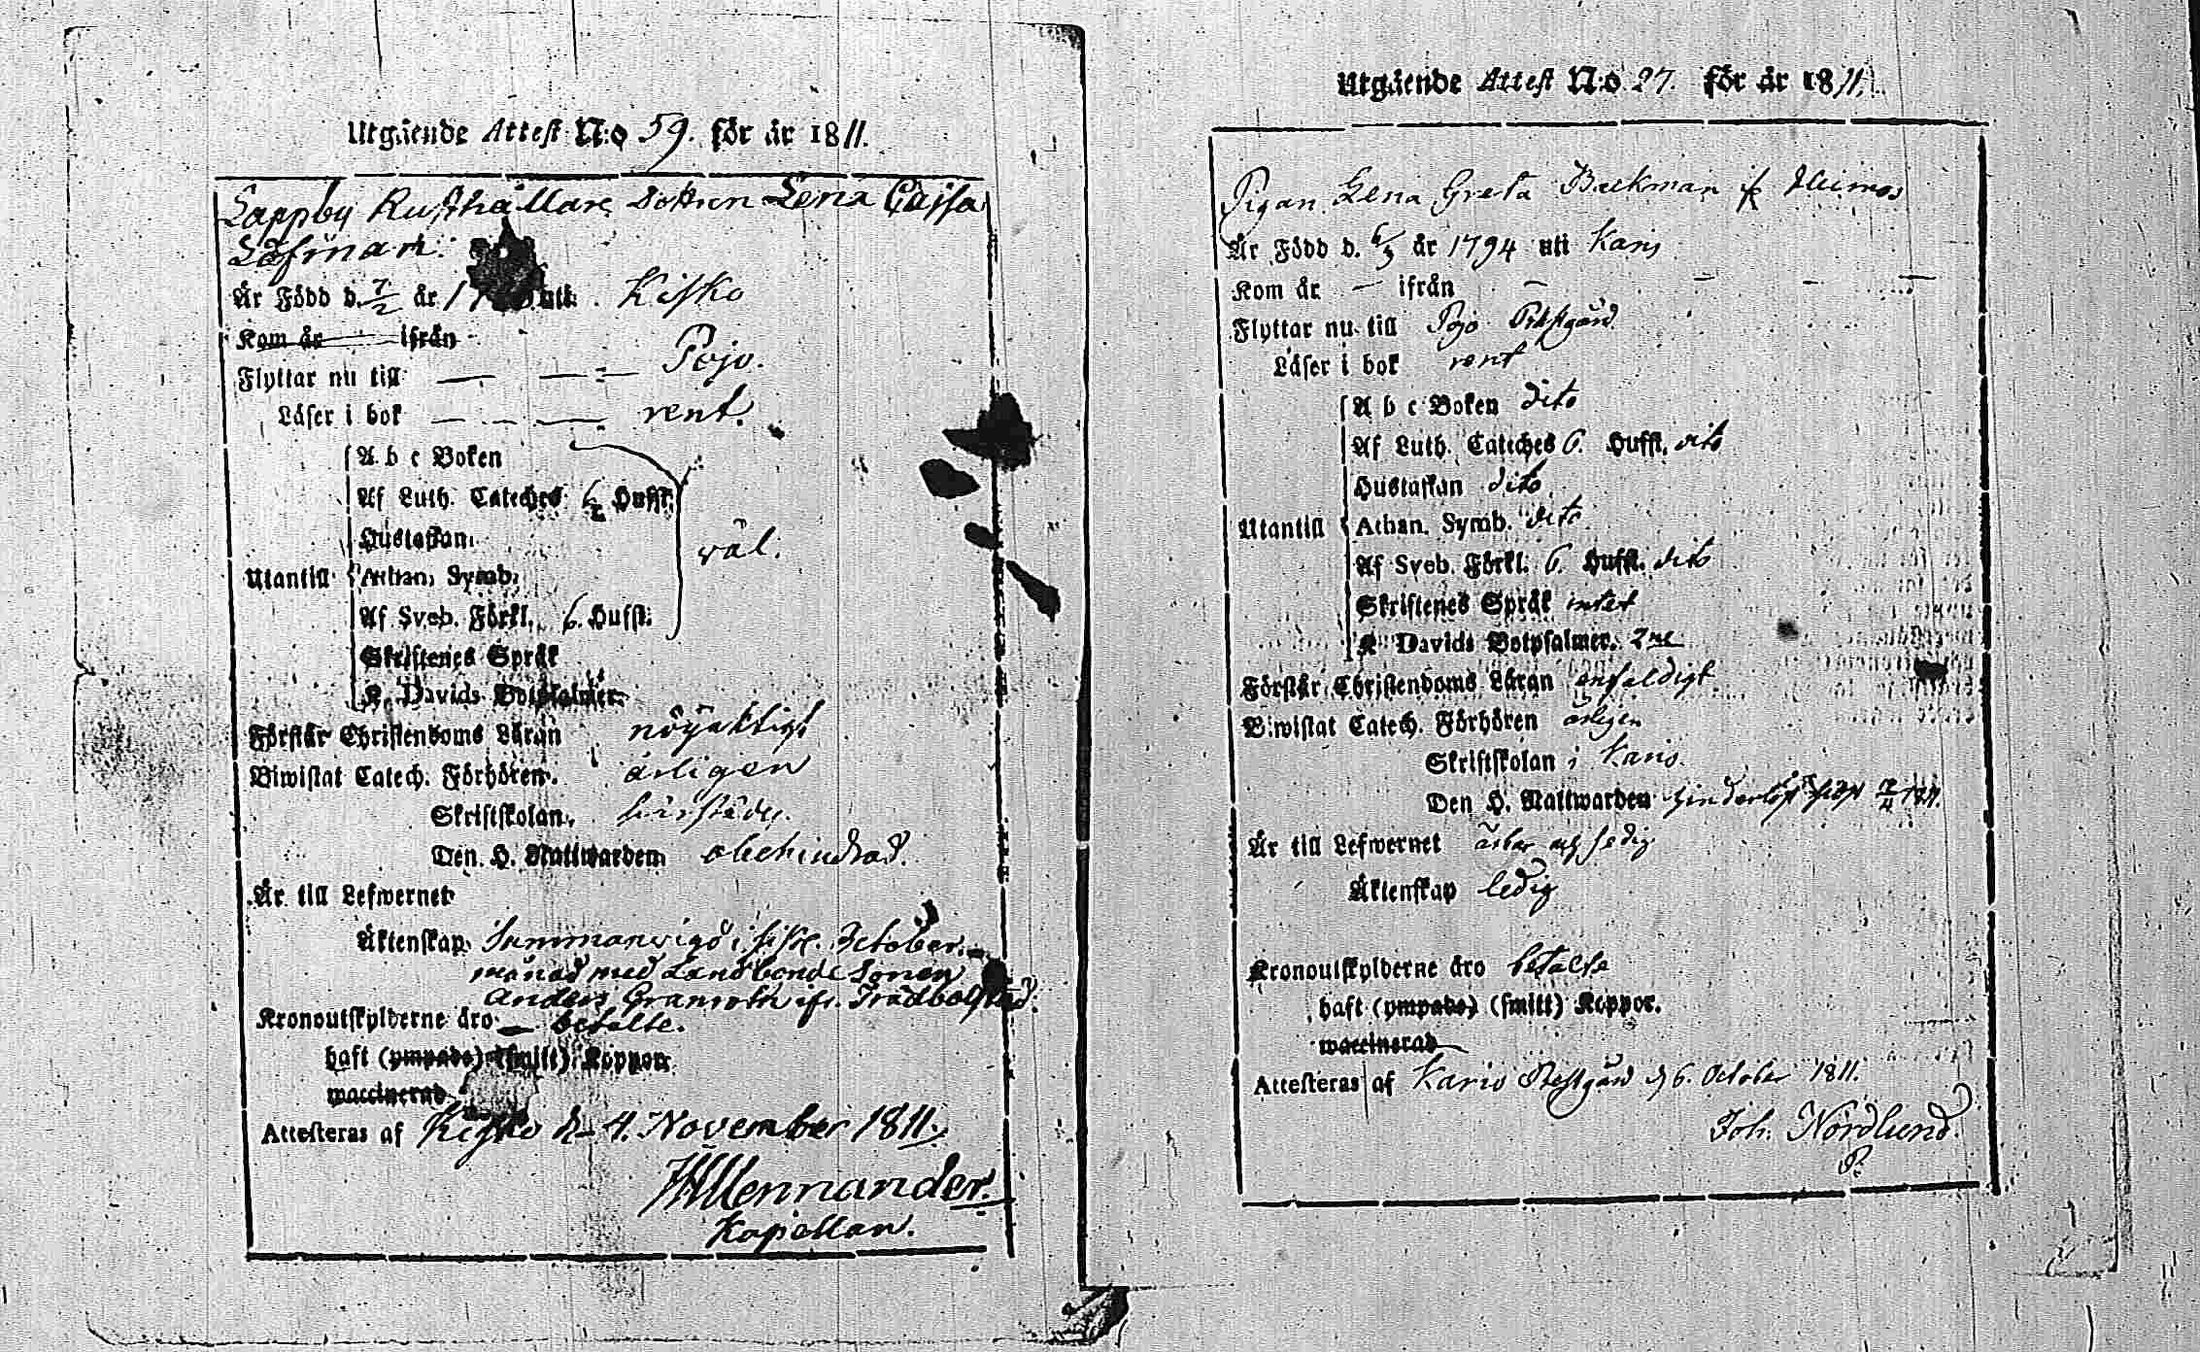 Utgående Attest N:o 59. för år 1811.
Lappby Rusthållare dottren Lena Cajsa
Löfman.
Är Född d. 7/2 år 17 uti Kisko
Kom år ifrån
Flyttar nu till — — — Pojo.
Läser i bok — — — rent.
A b c Boken
Af Luth. Cateches 6 Hufst.
Hustaflan
wäl.
Utantill Athan. Symb.
Af Sveb. Förkl. 6. Hufst.
Skriftenes Språk
K. Davids Botpsalmer.
Förstår Christendoms Läran nöyaktigt
Biwistat Catech. Förhören. årligen
Skriftskolan, härstädes.
Den H. Nattwarden obehindrad.
Är till Lefwernet
Äktenskap. Sammanvigd i sistl. October
månad med Landbonde Sonen
Anders Granroth ifr. Trädbolstad.
Kronoutskylderne äro betalte.
haft (ympade) (smitt) Koppor.
waccinerad
Attesteras af Kisko d. 4. November 1811.
Mennander.
Kapellan.
Utgående Attest N:o 27. för år 1811.
Pigan Lena Greta Backman
Är Född d. 6/3 år 1794 uti Karis
Kom år — ifrån —
Flyttar nu till Pojo Prästgård
Läser i bok rent
A b c Boken dito
Af Luth. Cateches 6. Hufst. dito
Hustaflan dito
Utantill Athan. Symb. dito
Af Sveb. Förkl. 6. Hufst. dito
Skriftenes Språk intet
K Davids Botpsalmer. 2ne
Förstår Christendoms Läran enfaldigt
Biwistat Catech. Förhören årligen
Skriftskolan i Karis
Den H. Nattwarden hinderlöst sist 7/4 1811.
Är till Lefwernet ärbar och sedig
Äktenskap ledig
Kronoutskylderne äro betalte
haft (ympade) (smitt) Koppor.
waccinerad
Attesteras af Karis Prestgård d. 6. October 1811.
Joh. Nordlund.
P.